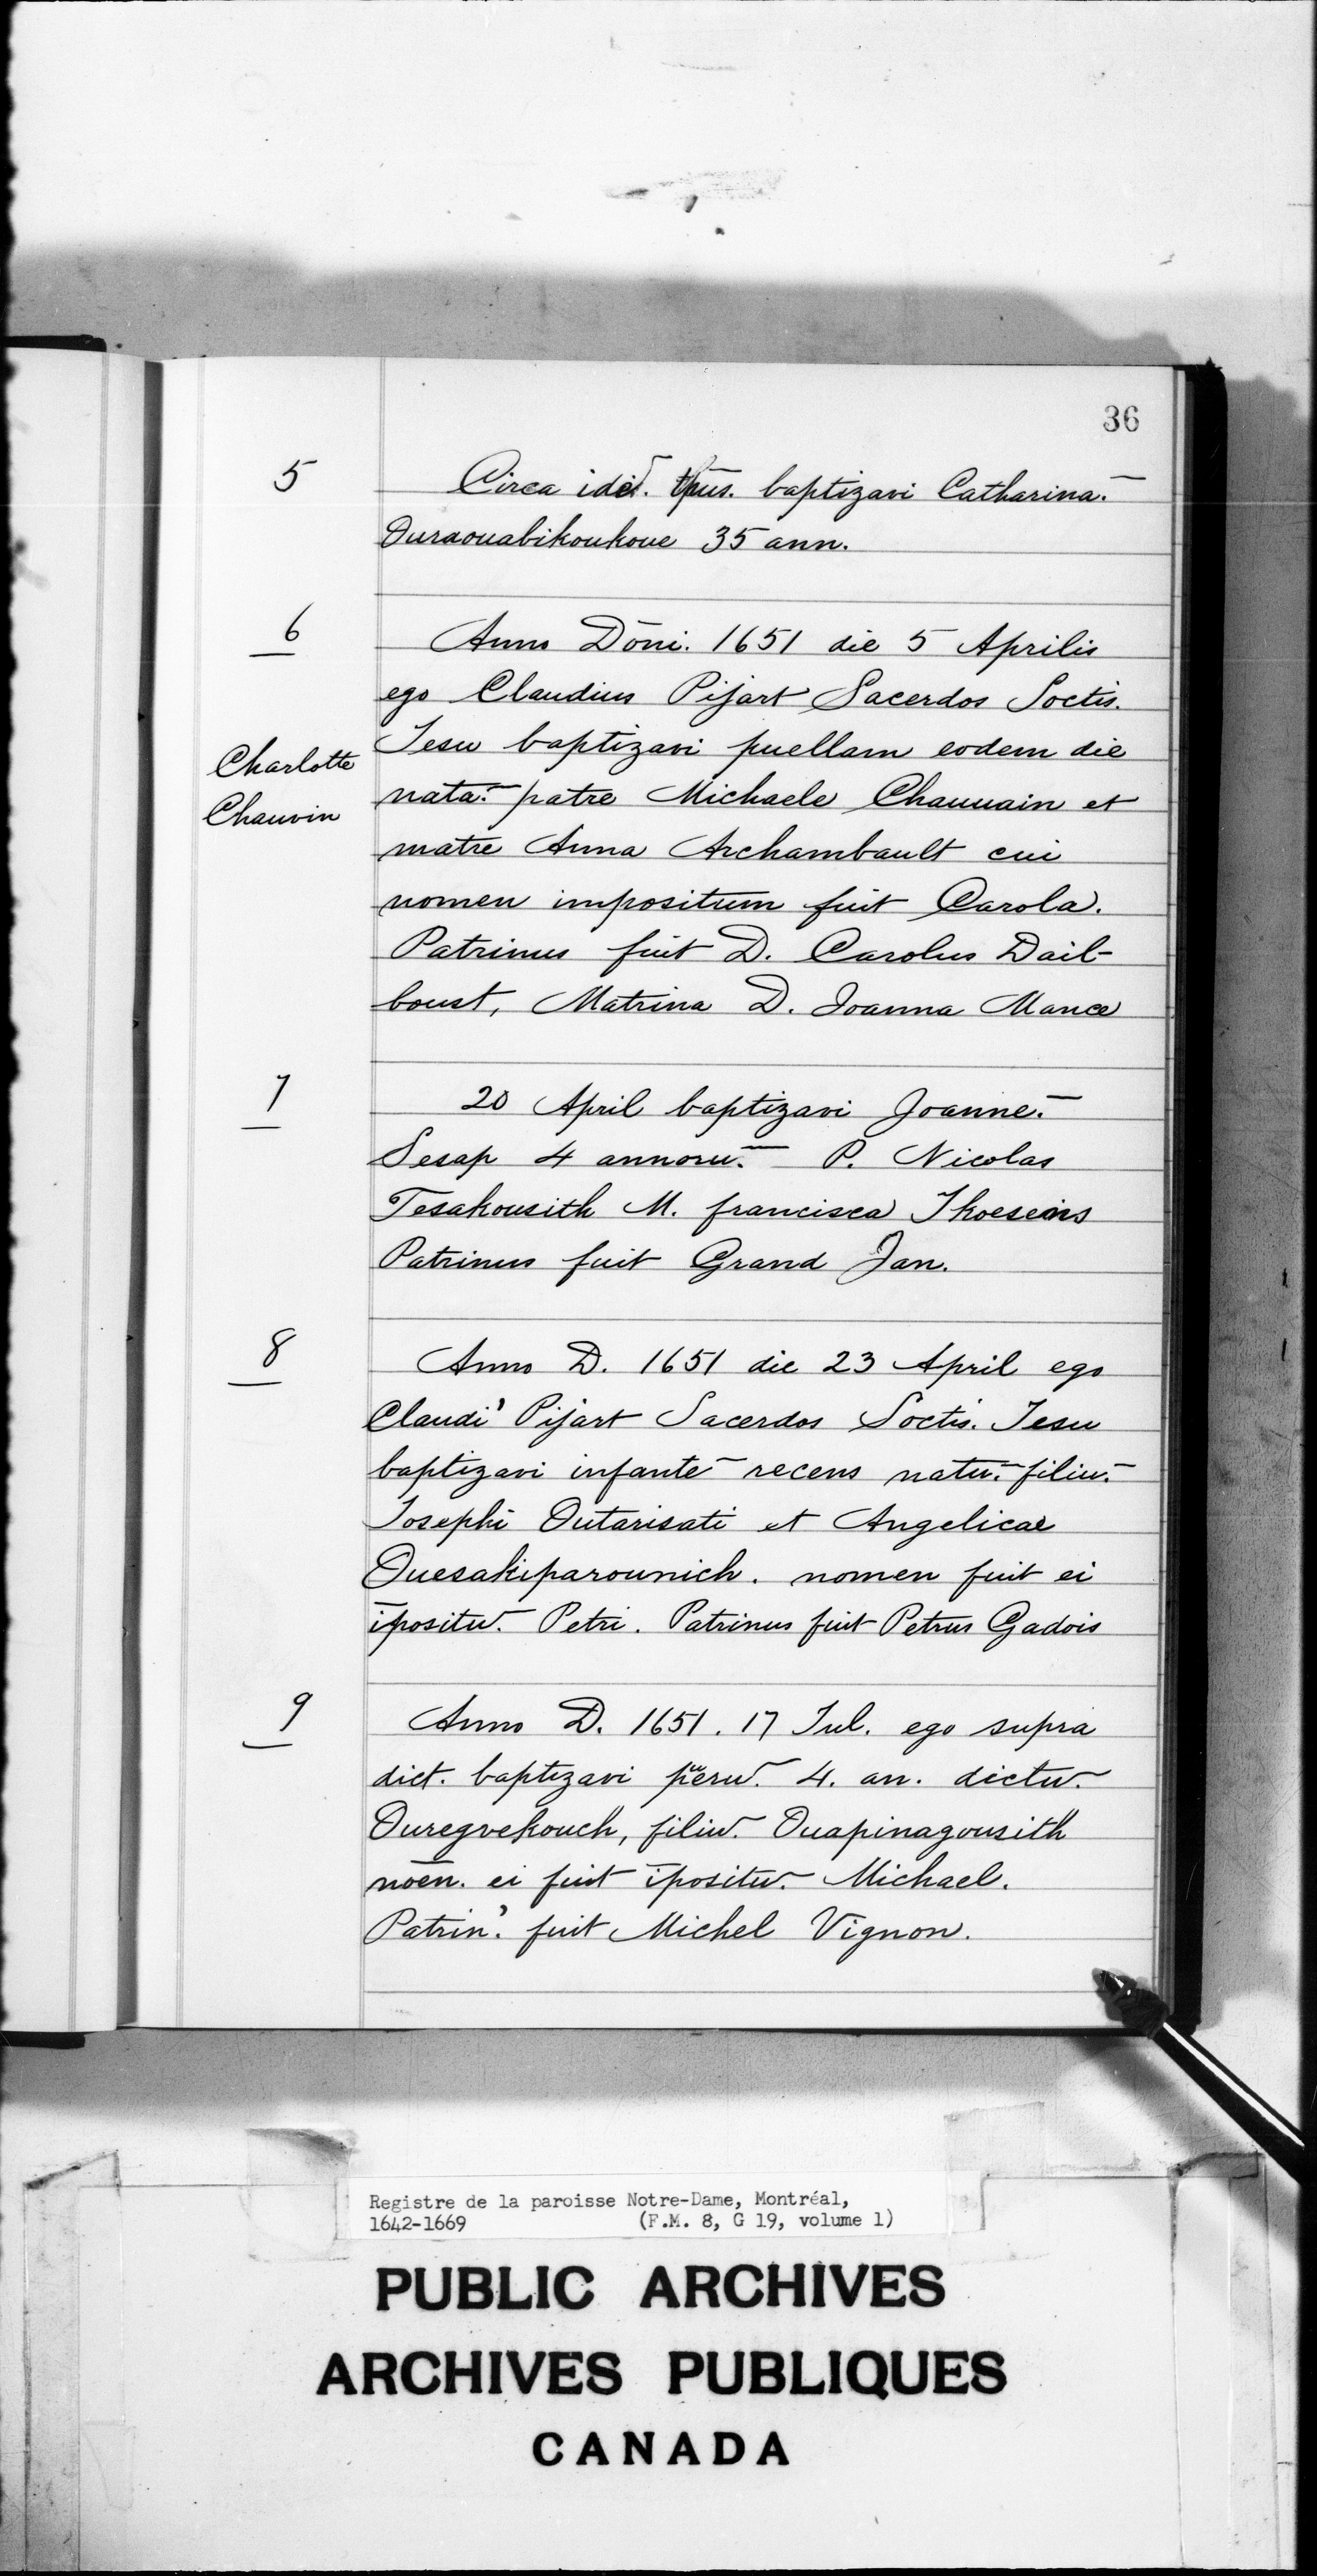 36
5
Circa idē. tp̄us. baptizavi Catharina.̄
Ouraouabikoukoue 35 ann.
6
Anno Dōni. 1651 die 5 Aprilis
ego Claudius Pijart Sacerdos Soctis.
Jesu baptizavi puellam eodem die
Charlotte
Chauvin
nata.̄ patre Michaele Chauuain et
matre Anna Archambault cui
nomen impositum fuit Carola.
Patrinus fuit D. Carolus Dail-
boust, Matrina D. Joanna Mance
7
20 April baptizavi Joanne.̄
Sesap 4 annoru.̄ P. Nicolas
Tesakousith M. francisca Ikoeseins
Patrinus fuit Grand Jan.
8
Anno D. 1651 die 23 April ego
Claudi' Pijart Sacerdos Soctis. Jesu
baptizavi infantē recens natu.̄ filiu.̄
Josephi Outarisati et Angelicae
Ouesakiparounich. nomen fuit ei
īpositu.̄ Petri. Patrinus fuit Petrus Gadois
9
Anno D. 1651. 17 Jul. ego supra
dict. baptizavi p̄eru.̄ 4. an. dictu.̄
Ouregvekouch, filiu.̄ Ouapinagousith
nōen. ei fuit īpositu.̄ Michael.
Patrin'. fuit Michel Vignon.
Registre de la paroisse Notre-Dame, Montréal,
1642-1669 (F.M. 8, G 19, volume 1)
PUBLIC ARCHIVES
ARCHIVES PUBLIQUES
CANADA